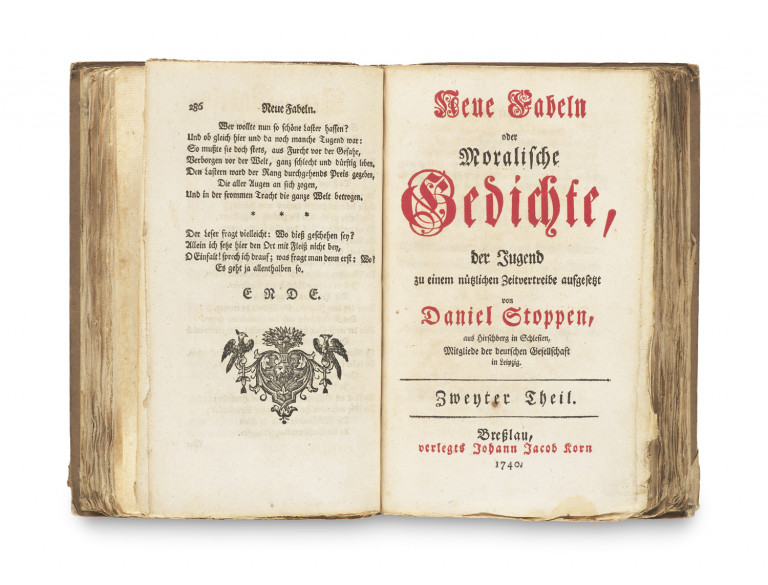 286 Neue Fabeln.
Wer wollte nun so schöne Laster hassen?
Und ob gleich hier und da noch manche Tugend war:
So mußte sie doch stets, aus Furcht vor der Gefahr,
Verborgen vor der Welt, ganz schlecht und dürftig leben.
Den Lastern ward der Rang durchgehends Preis gegeben,
Die aller Augen an sich zogen,
Und in der frommen Tracht die ganze Welt betrogen.
* * *
Der Leser fragt vielleicht: Wo dieß geschehen sey?
Allein ich setze hier den Ort mit Fleiß nicht bey,
O Einfalt! sprech ich drauf; was fragt man denn erst: Wo?
Es geht ja allenthalben so.
ENDE.
Neue Fabeln
oder
Moralische
Gedichte,
der Jugend
zu einem nützlichen Zeitvertreibe aufgesetzt
von
Daniel Stoppen,
aus Hirschberg in Schlesien,
Mitgliede der deutschen Gesellschaft
in Leipzig.
Zweyter Theil.
Breßlau,
verlegts Johann Jacob Korn
1740.